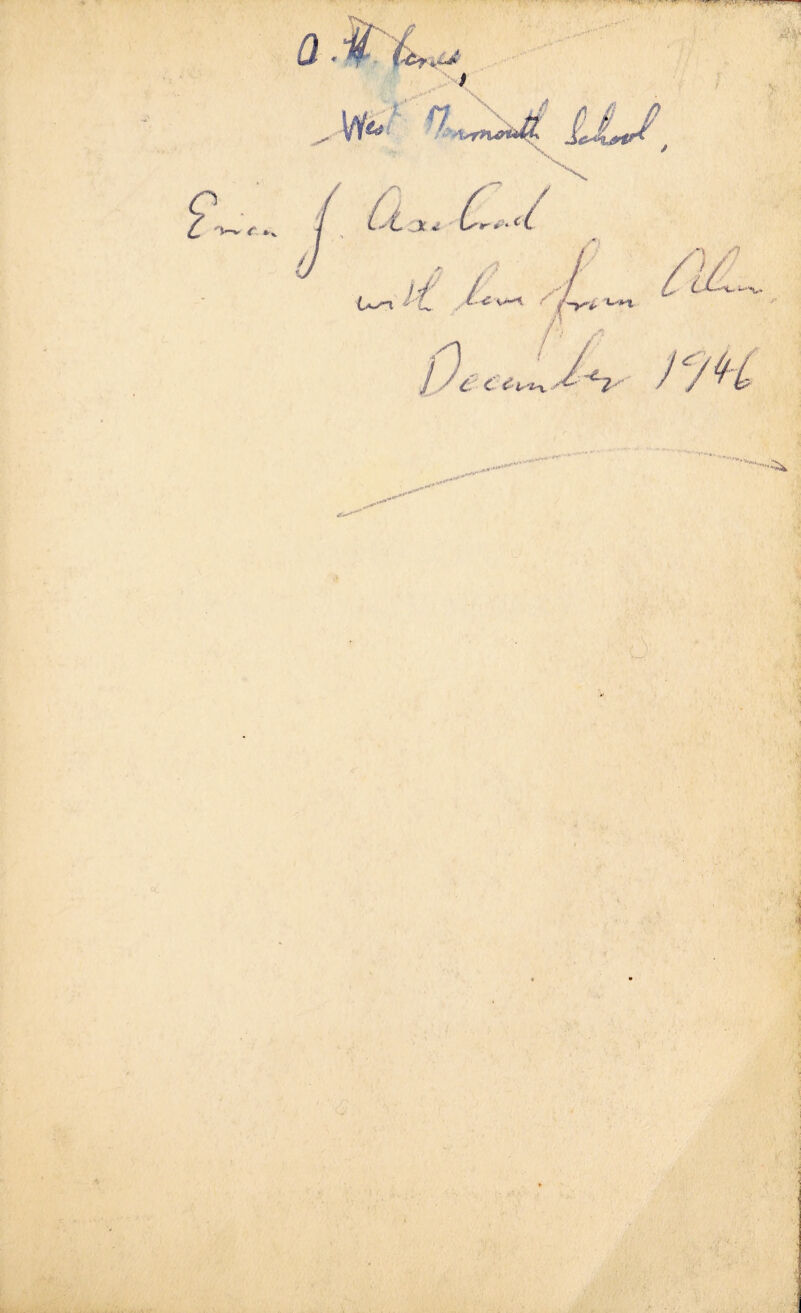 A. H. Jones,
West Monmouth School,
Erica J. Axelrad
with love from Alun
December 1946